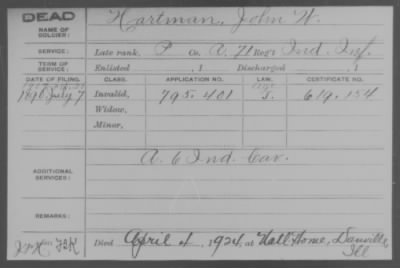 DEAD
NAME OF SOLDIER: Hartman, John W.
SERVICE: Late rank, P Co. A, 71 Reg't Ind. Inf.
TERM OF SERVICE: Enlisted , 1 Discharged , 1
DATE OF FILING. CLASS. APPLICATION NO. LAW. CERTIFICATE NO.
1890 July 7 Invalid, 795.401 619.134
Widow,
Minor,
ADDITIONAL SERVICES: A. 6 Ind. Cav.
REMARKS:
Died April 4, 1924, at Natl Home, Danville,
Ill